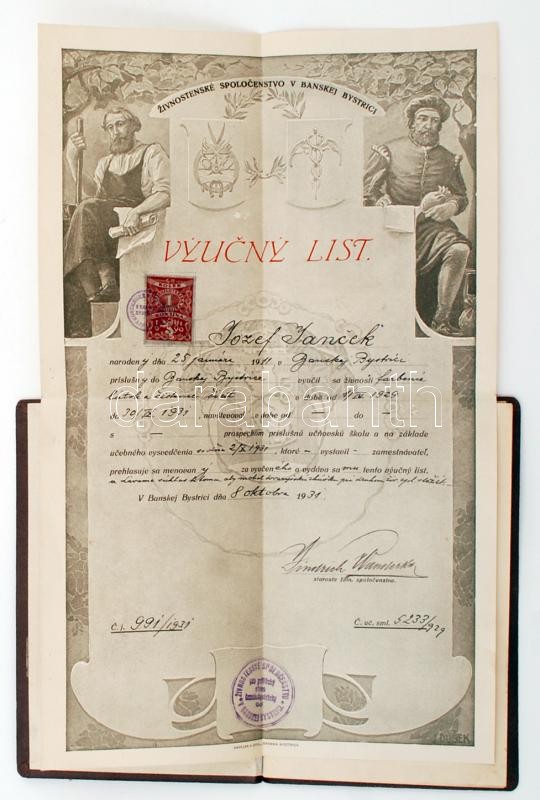 ŽIVNOSTENSKÉ SPOLOČENSTVO V BANSKEJ BYSTRICI
VÝUČNÝ LIST.
KOLEK
1
KORUNA
Jozef Janček
narodený dňa 25 januara 1911, v Banskej Bystrici
príslušný do Banskej Bystrice vyučil sa živnosti farbenie
látok a čistenie šiat v dobe od 1929
do 30/IX 1931, navštevoval v dobe od — do —
s — prospechom príslušnú učňovskú školu a na základe
učebného vysvedčenia zo dňa 2/X 1931, ktoré — vystavil — zamestnávateľ,
prehlasuje sa menovaný za vyučeného a vydáva sa mu tento výučný list.
V Banskej Bystrici dňa 8 oktobra 1931.
Jindrich Wanderka
starosta živn. spoločenstva.
Č. l. 991/1931
Č. uč. sml. 5233/929
ŽIVNOSTENSKÉ SPOLOČENSTVO
DUŠEK
darabanth